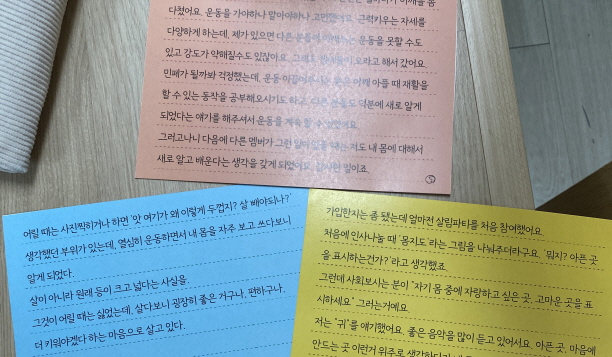 어깨를 좀
다쳤어요. 운동을 가야하나 말아야하나 고민했어요. 근력키우는 자세를
다양하게 하는데, 제가 있으면 다른 분들이 운동을 못할 수도
있고 강도가 약해질수도 있잖아요. 오라고 해서 갔어요.
민폐가 될까봐 걱정했는데, 운동 어깨 아플 때 재활을
할 수 있는 동작을 공부해오시기도 하고, 다른 덕분에 새로 알게
되었다는 얘기를 해주셔서 운동을 계속 할 수 있었어요.
그러고나니 다음에 다른 멤버가 그런 저도 내 몸에 대해서
새로 알고 배운다는 생각을 갖게 되었어요. 감사한 일이죠.
어릴 때는 사진찍히거나 하면 '앗 여기가 왜 이렇게 두껍지? 살 빼야되나?'
생각했던 부위가 있는데, 열심히 운동하면서 내 몸을 자주 보고 쓰다보니
알게 되었다.
살이 아니라 원래 등이 크고 넓다는 사실을.
그것이 어릴 때는 싫었는데, 살다보니 굉장히 좋은 거구나, 편하구나,
더 키워야겠다 하는 마음으로 살고 있다.
가입한지는 좀 됐는데 얼마전 살림파티를 처음 참여했어요.
처음에 인사나눌 때 '몸지도'라는 그림을 나눠주더라구요. '뭐지? 아픈 곳
을 표시하는건가?'라고 생각했죠.
그런데 사회보시는 분이 "자기 몸 중에 자랑하고 싶은 곳, 고마운 곳을 표
시하세요" 그러는거예요.
저는 "귀"를 얘기했어요. 좋은 음악을 많이 듣고 있어서요. 아픈 곳, 마음에
안드는 곳 이런거 위주로 생각하다가